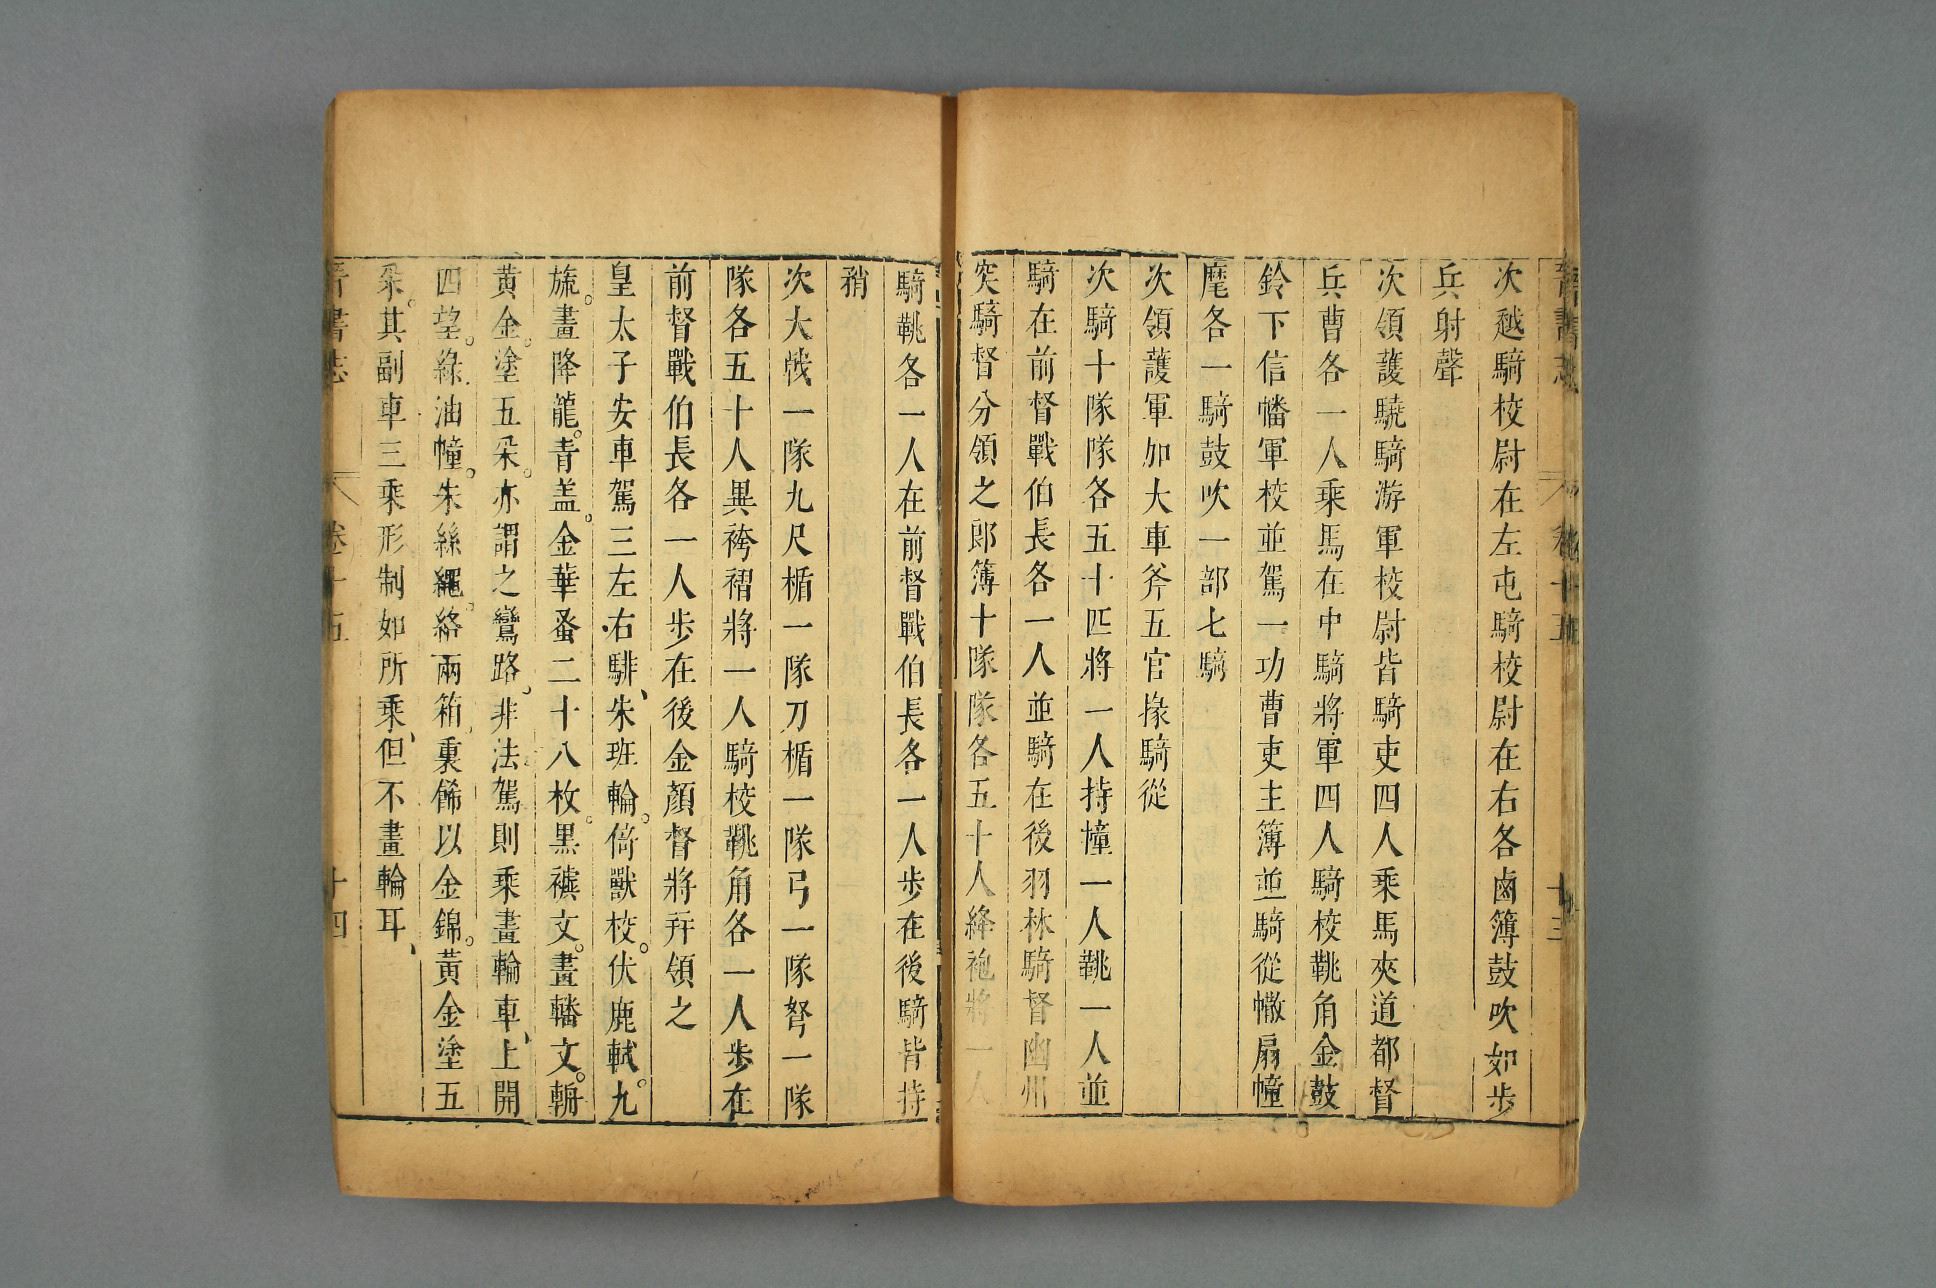 晉書志 卷十五 十三
次越騎校尉在左屯騎校尉在右各鹵簿鼓吹如步
兵射聲
次領護驍騎游軍校尉皆騎吏四人乘馬夾道都督
兵曹各一人乘馬在中騎將軍四人騎校鞉角金鼓
鈴下信幡軍校並駕一功曹吏主簿並騎從繖扇幢
麾各一騎鼓吹一部七騎
次領護軍加大車斧五官掾騎從
次騎十隊隊各五十匹將一人持幢一人鞉一人並
騎在前督戰伯長各一人並騎在後羽林騎督幽州
突騎督分領之郎簿十隊隊各五十人絳袍將一人
騎鞉各一人在前督戰伯長各一人步在後騎皆持
矟
次大戟一隊九尺楯一隊刀楯一隊弓一隊弩一隊
隊各五十人異袴褶將一人騎校鞉角各一人步在
前督戰伯長各一人步在後金顏督將并領之
皇太子安車駕三左右騑、朱班輪。倚獸校。伏鹿軾。九
旒。畫降龍。青蓋。金華蚤二十八枚。黑㯺文。畫轓文。輈
黃金。塗五采。亦謂之鸞路。非法駕則乘畫輪車、上開
四望。綠油幢。朱絲繩。絡兩箱、裏飾以金錦。黃金塗五
采。其副車三乘形制如所乘、但不畫輪耳、
晉書志 卷十五 十四